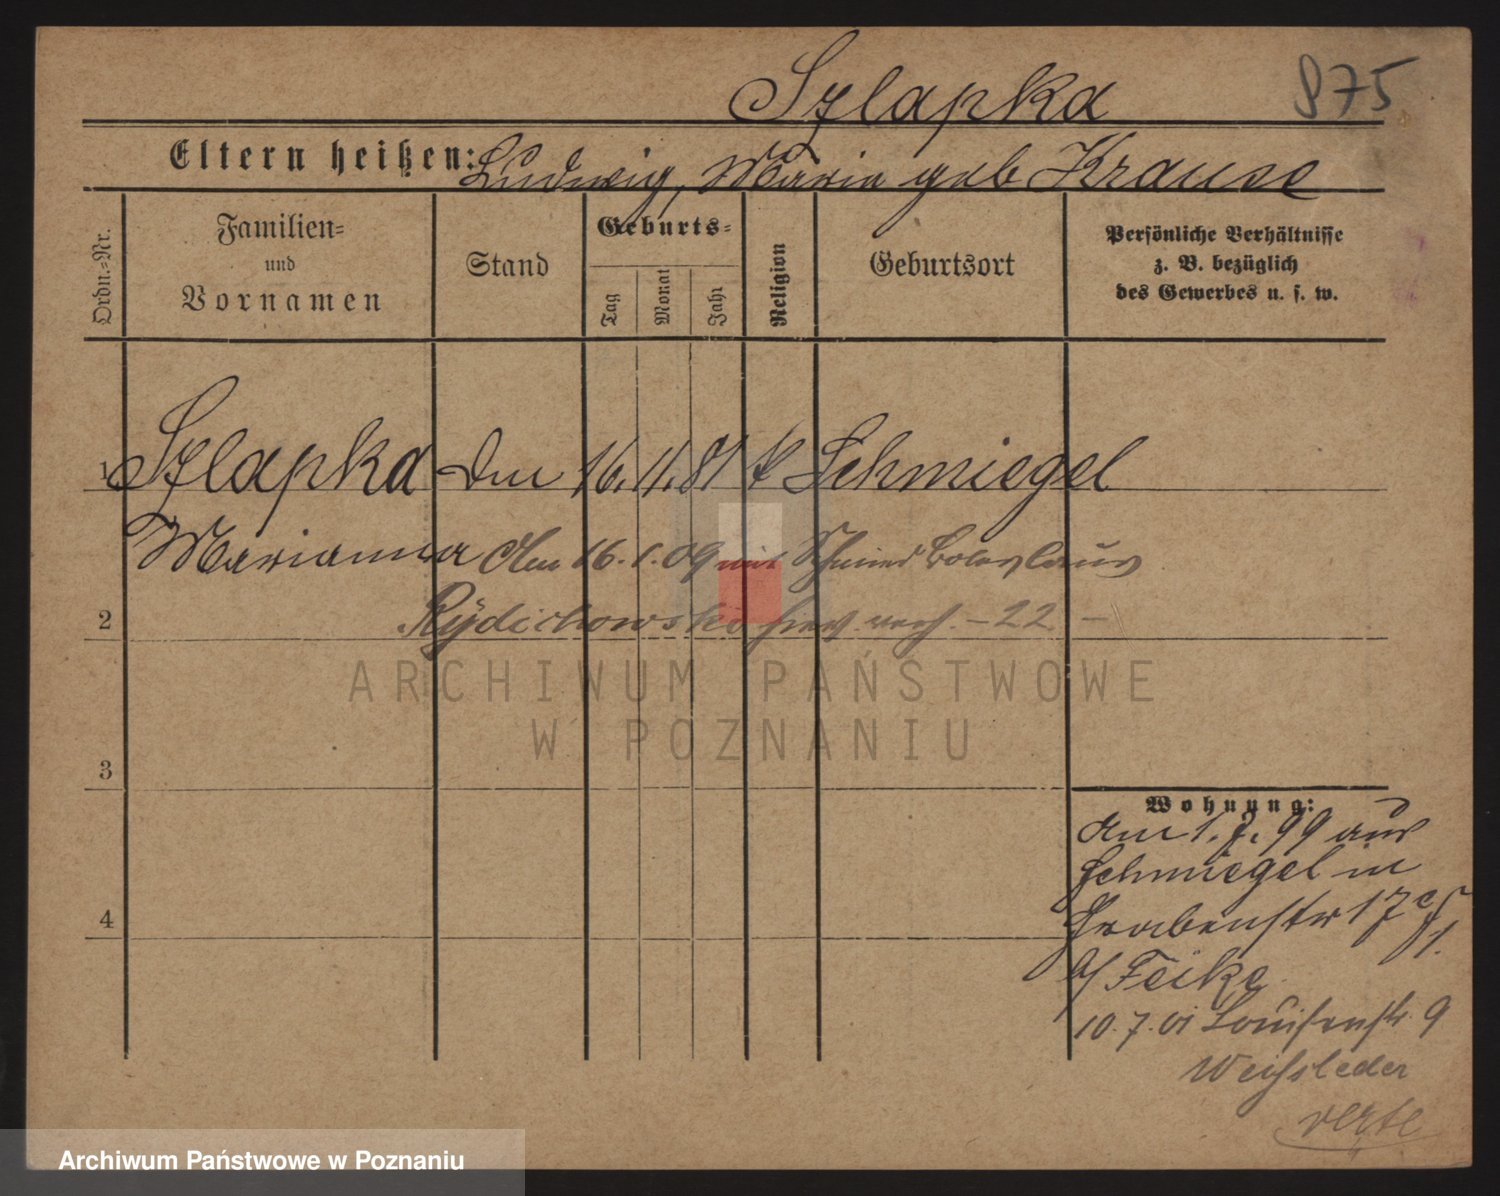 Szlapka 875
Eltern heißen: Ludwig, Maria geb Krause
Ordn.-Nr.
Familien-
und
Vornamen
Stand
Geburts-
Tag
Monat
Jahr
Religion
Geburtsort
Persönliche Verhältnisse
z. B. bezüglich
des Gewerbes u. s. w.
1 Szlapka 16. 11. 81 k Schmiegel
Marianna Am 16. 1. 09 mit Schmied Boleslaus
2 Rydichowski hier verh. - 22 -
ARCHIWUM PAŃSTWOWE
W POZNANIU
3
Wohnung:
Am 1. 7. 99 aus
Schmiegel in
4 Grabenstr 17
b/ Feike
10. 7. 01 Louisenstr. 9
Weissleder
verte
Archiwum Państwowe w Poznaniu